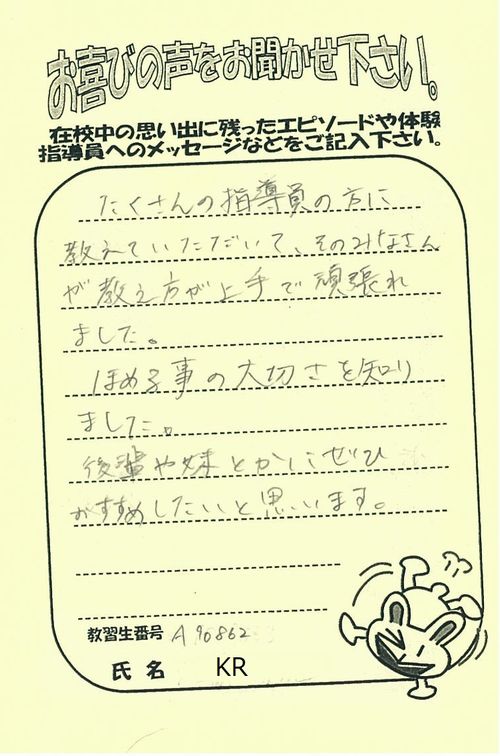 お喜びの声をお聞かせ下さい。
在校中の思い出に残ったエピソードや体験
指導員へのメッセージなどをご記入下さい。
たくさんの指導員の方に
教えていただいて、そのみなさん
が教え方が上手で頑張れ
ました。
ほめる事の大切さを知り
ました。
後輩や妹とかにぜひ
おすすめしたいと思います。
教習生番号 A90862
氏名 KR